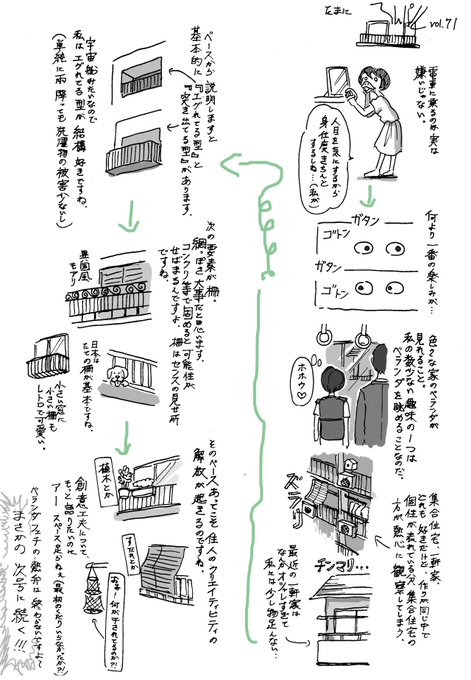 たまに
vol.71
電車に乗るのは実は
嫌いじゃない。
人目を気にするから
身仕度きちんと
するしね…(私が)
何より一番の楽しみが…
ガタン
ゴトン
ガタン
ゴトン
色々な家のベランダが
見れること。
私の数少ない趣味の一つは
ベランダを眺めることなのだ。
ホホウ♡
ズラリ
集合住宅、一軒家、
どれも好きだけど、作りが同じ中で
個性が表れている分、集合住宅の
方が熱心に観察してしまう。
チンマリ…
最近の一軒家は
なんかオシャレすぎて
私には少し物足んない…
ベースから説明しますと
基本的に『エグれてる型』と
『突き出てる型』があります。
宇宙船みたいなので
私はエグれてる型が結構好きですね。
(単純に雨降っても洗濯物の被害少ないし)
次の要素が柵。
コンクリ等で固めると可能性が
せばまるんですよ。柵はセンスの見せ所
ですね。
異国風
モアリ
日本は
たての柵が基本ですね。
小さい窓に
小さい柵も
レトロで可愛い。
そのベースあってこそ住人のクリエイティビティの
解放が起きるのですね。
植木とか
すだれとか
創意工夫について、
もっと語りたいのに
アー、スペース足らねェ(最初のくだりいらなかったか?!)
おっ!何が干されてるのか?!
ベランダフェチの熱弁は終わらないですよ〜
まさかの次号に続く!!!